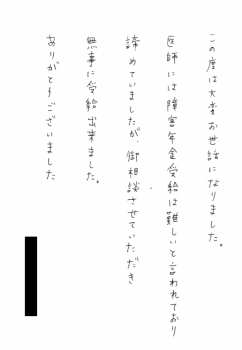 この度は大変お世話になりました。
医師には障害年金受給は難しいと言われており
諦めていましたが、御相談させていただき
無事に受給出来ました。
ありがとうございました